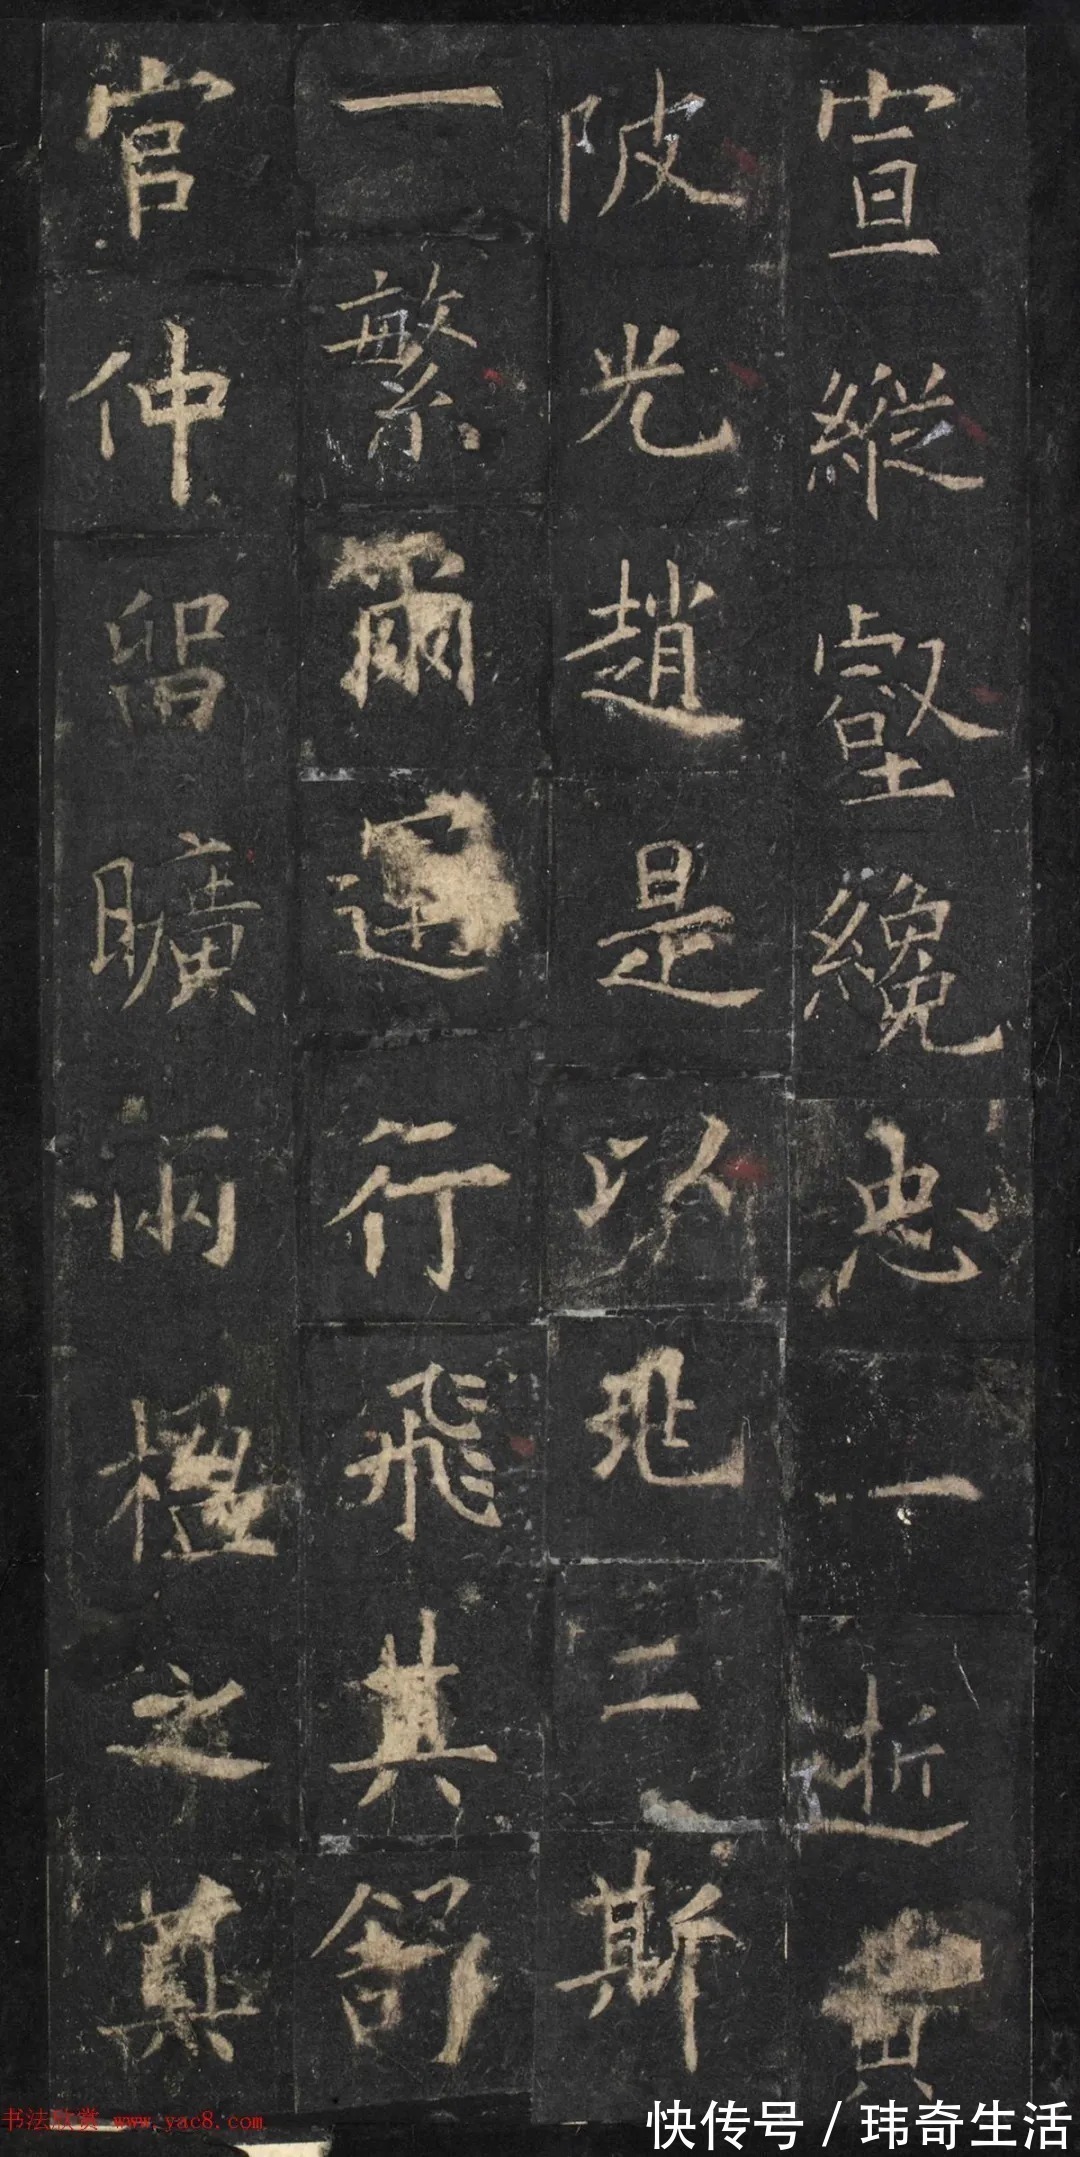 宣縱壑纔忠一逝
陂光趙是以二斯
一繁爾行飛其舒
官仲留曠兩楹之奠
书法欣赏 www.yac8.com
快传号/玮奇生活